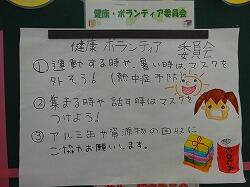 健康・ボランティア委員会
健康 ボランティア 委員会
① 運動する時や、暑い時は、マスクを
外そう!(熱中症予防)
② 集まる時や 話す時はマスクを
つけよう!
③ アルミ缶や資源物の回収に
ご協力お願いします。